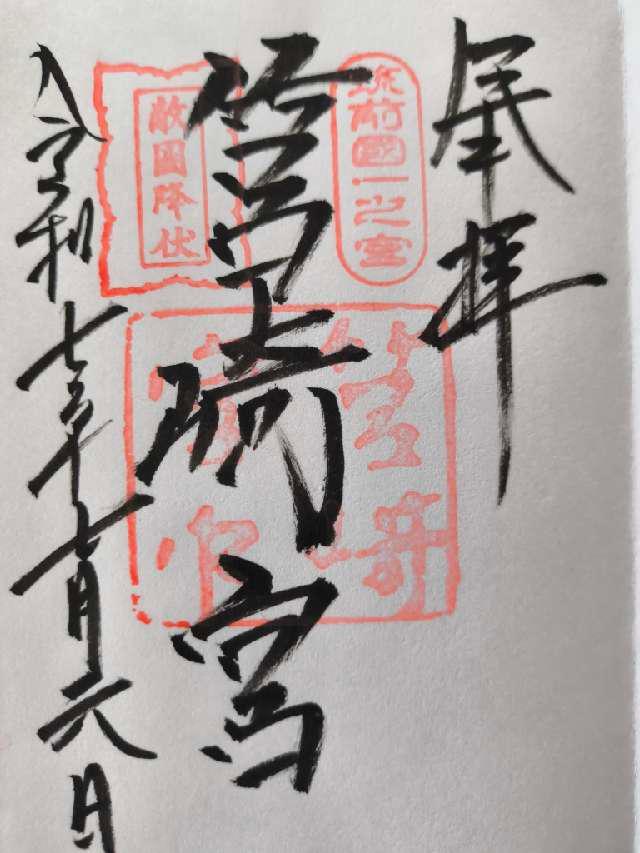 奉拝
筑前國一之宮
筥崎宮
筥崎宮印
敵国降伏
令和七年七月六日